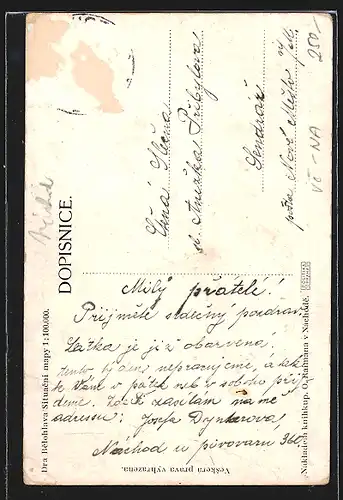 DOPISNICE.
Dra Bělohlava Situační mapy 1:100.000.
Veškerá práva vyhrazena.
Nakladem knihkup. O. Kuhrána v Náchodě.
Ctná Slečna
sl. Anežka Přibylova
Sendraž
pošta Nové Město n/M.
Milý přátelé!
Přijměte srdečný pozdrav
Látka je již obarvena,
tento týden nepracujeme, a tak
k Vám v pátek neb v sobotu přij
deme. zasílám na mé
adressu: Josefa Dyntarova,
Náchod u pivovaru 360
250,-
VČ-NA